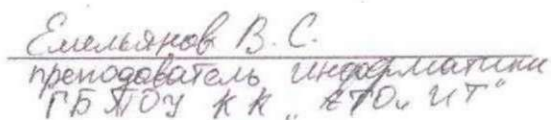 Емельянов В. С.
преподаватель информатики
ГБПОУ КК „ КТО„ ИТ"